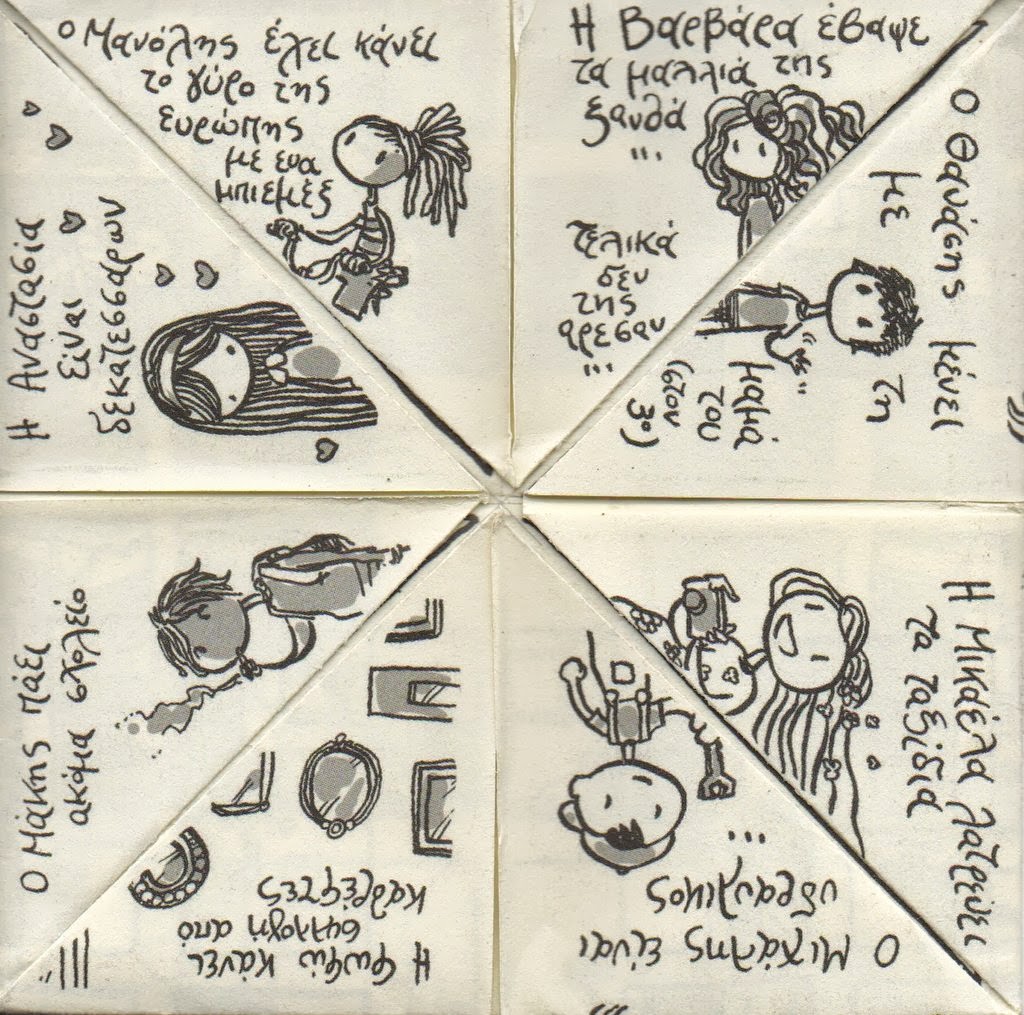 Ο Μανόλης έχει κάνει
το γύρο της
Ευρώπης
με ενα
μπιεμέξ
Η Βαρβάρα έβαψε
τα μαλλιά της
ξανθά
...
τελικά
δεν
της
άρεσαν
...
Ο Θανάσης μένει
με τη
μαμά
του
(στον
3ο)
Η Μικαέλα λατρεύει
τα ταξίδια
Ο Μιχάλης είναι
υδραυλικός
...
Η Φωφώ κάνει
συλλογή από
καθρέφτες
Ο Μάκης πάει
ακόμα σχολείο
Η Αναστασία
είναι
δεκατεσσάρων